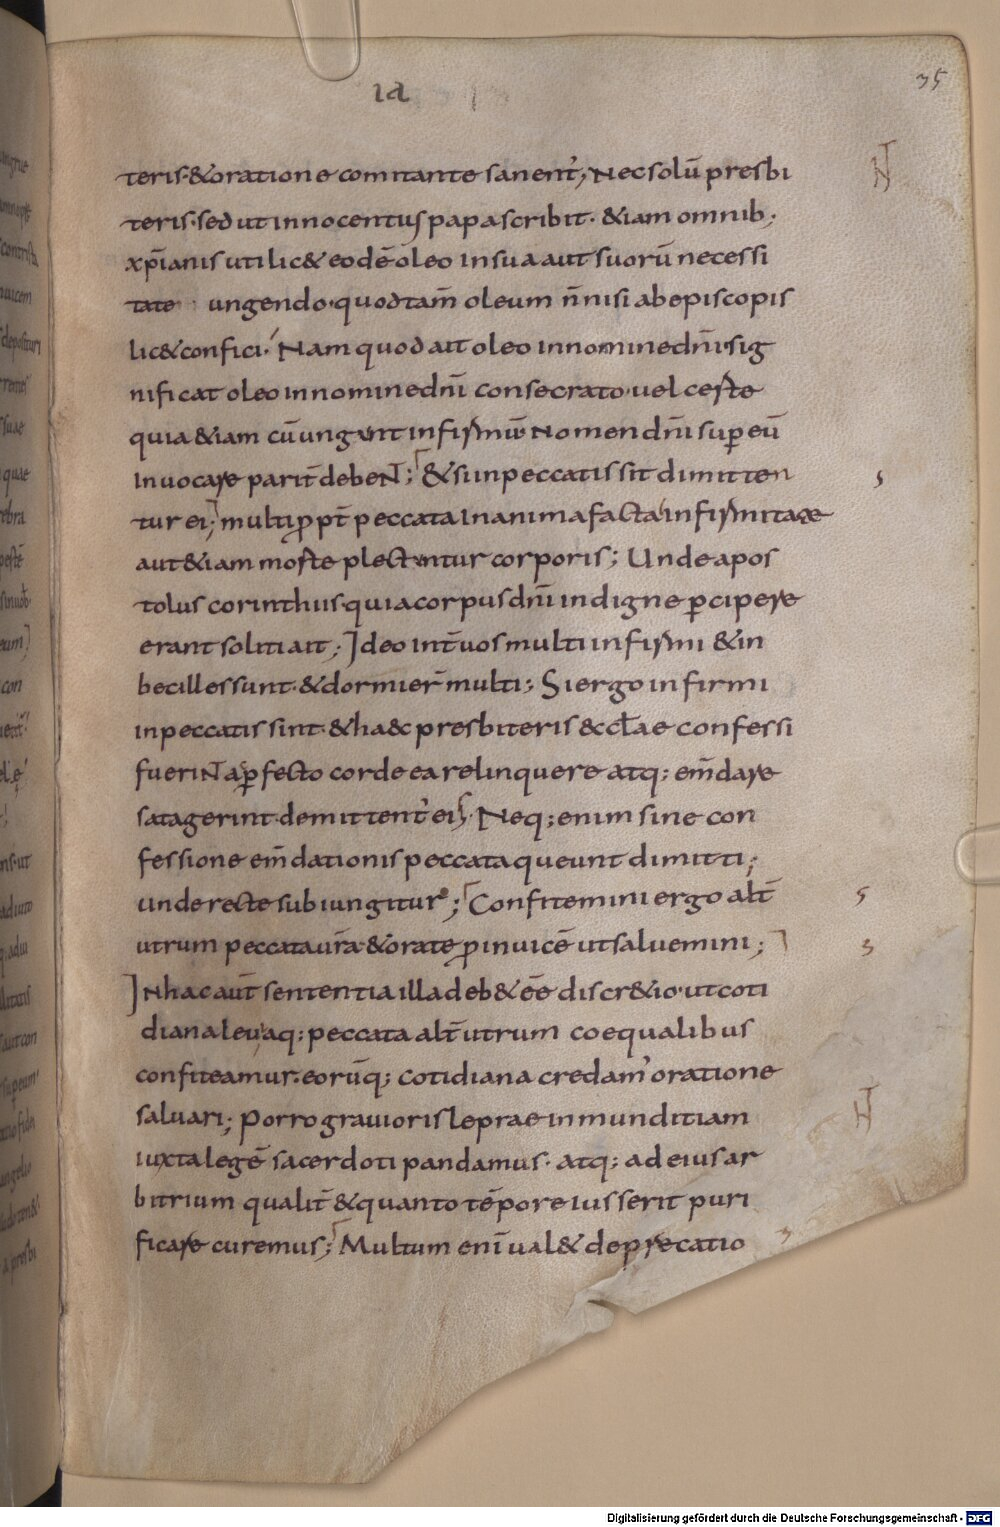 ıa
35
teris·&oratione comitante sanent᷑; Nec solū presbi
teris·sed ut innocentius papa scribit· &iam omnib;
xp̄ianis uti lic& eodē oleo in sua aut suorū necessi
tate ungendo·quod tam̄ oleum n̄ nisi ab episcopis
lic& confici· Nam quod ait oleo in nomine dn̄i·sig
nificat oleo in nomine dn̄i consecrato·uel certe
quia &iam cū ungunt infirmū· Nomen dn̄i sup̱ eū
Inuocare parit̄ debeNT; &si in peccatis sit dimitten
tur ei; multi p̱pt̄ peccata in anima facta infirmitate
aut &iam morte plectuntur corporis; Unde apos
tolus corinthiis·quia corpus dn̄i indigne p̱cipere
erant soliti ait; Ideo int̄ uos multi infirmi &in
becilles sunt·&dormier̄ multi; Si ergo infirmi
in peccatis sint·&haec presbiteris &cclae confessi
fueriNT ap̱fecto corde ea relinquere atq; em̄dare
satagerint·demittent᷑ eis· Neq; enim sine con
fessione em̄dationis peccata queunt dimitti;
unde recte subiungitur; Confitemini ergo alt̄
utrum peccata ur̄a·&orate p̱ inuicē ut saluemini;
IN hac aut̄ sententia illa deb& eē discr&io·ut coti
diana leuiaq; peccata alt̄utrum coequalibus
confiteamur·eorūq; cotidiana credam᷑ oratione
saluari; Porro grauioris leprae inmunditiam
iuxta legē sacerdoti pandamus· atq; ad eius ar
bitrium qualit̄ &quanto tēpore iusserit puri
ficare curemus; Multum enī ual& deprecatio
Digitalisierung gefördert durch die Deutsche Forschungsgemeinschaft - DFG